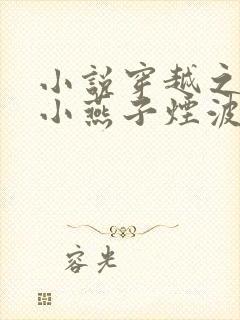 小说穿越之
小燕子烟波
容光